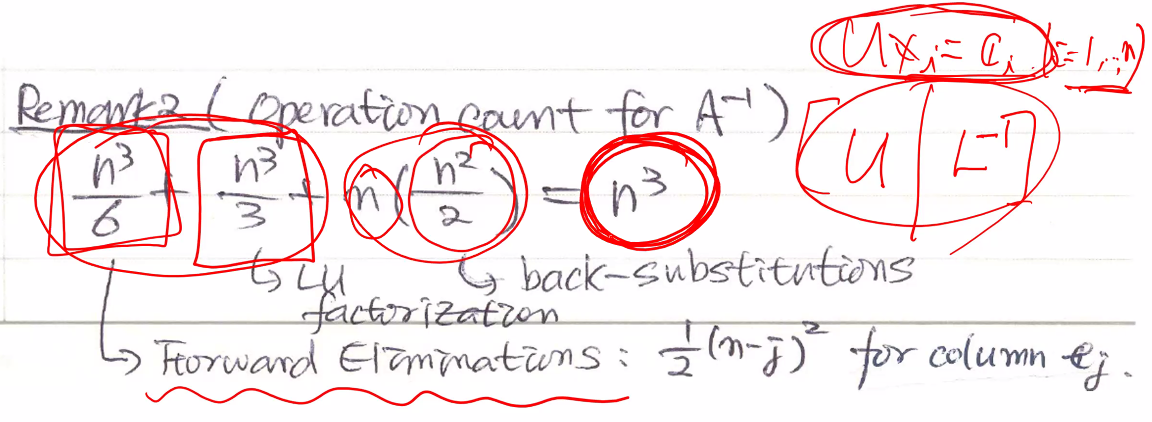 Ux_i = c_i (i=1,..,n)
Remark 2 ( Operation count for A^{-1} )
[ U | L^{-1} ]
n^3/6 + n^3/3 + n(n^2/2) = n^3
↳ LU factorization
↳ back-substitutions
↳ Forward Eliminations : 1/2 (n-j)^2 for column e_j.